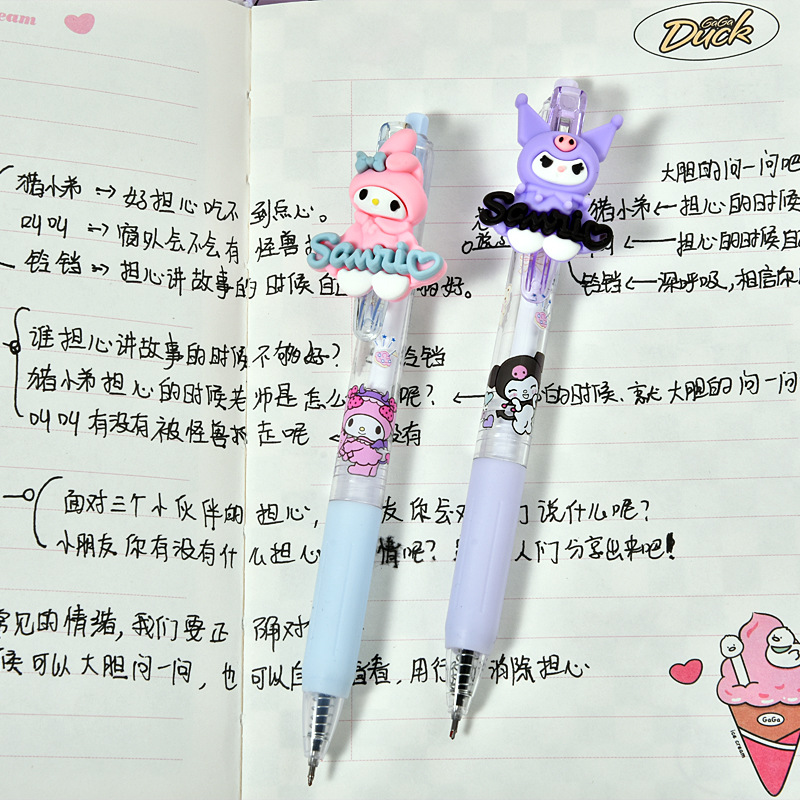 eam
GaGa
Duck
Sanrio
Sanrio
大胆的问一问吧
猪小弟 → 好担心吃不到点心。
猪小弟 ← 担心的时候
叮叮 → 窗外会不会有怪兽
← 担心的时候
铃铛 → 担心讲故事的时候自 的好。
铃铛 ← 深呼吸,相信你
谁担心讲故事的时候不够好? 铃铛
猪小弟担心的时候老师是怎么 呢? ← 的时候、就大胆的问一问
叮叮有没有被怪兽 走呢 ← 没有
面对三个小伙伴的担心, 友你会对 们说什么呢?
小朋友你有没有什么担心 情呢? 人们分享出来吧!
常见的情绪,我们要正确对
候可以大胆问一问,也可以自 看,用行 消除担心
GaGa
ice cream